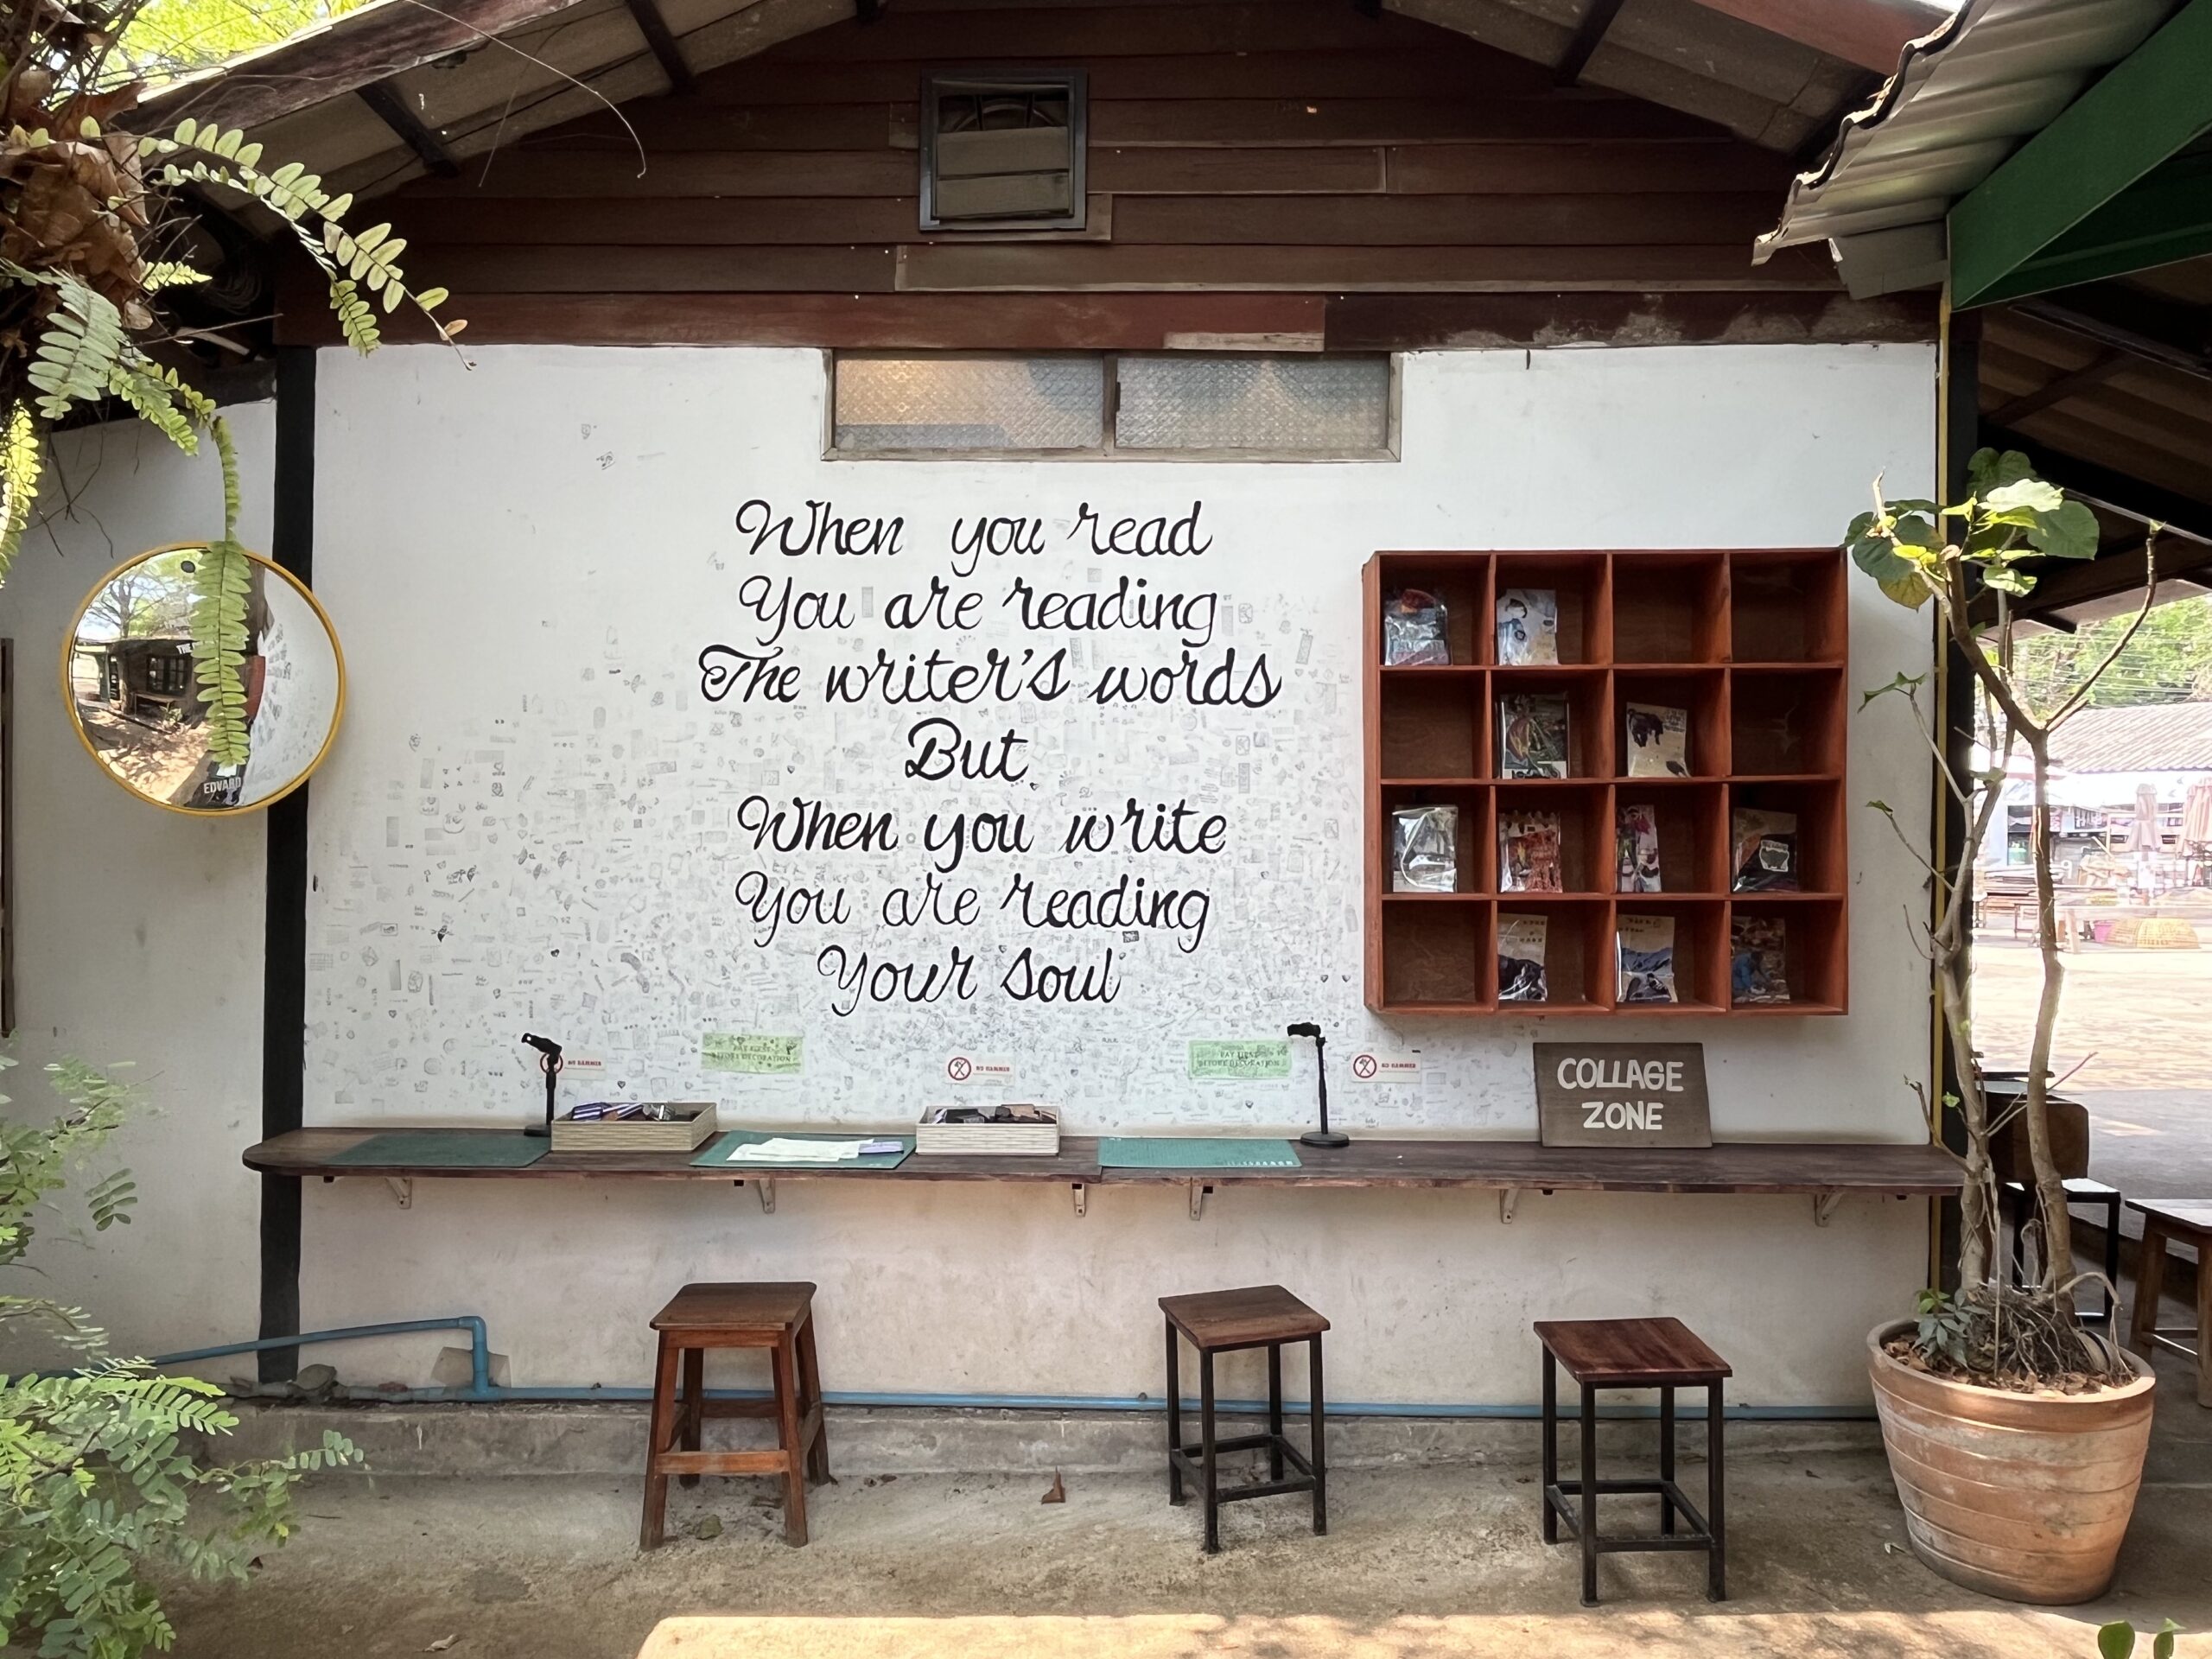 When you read
You are reading
The writer's words
But
When you write
You are reading
Your soul
NO HAMMER
PAY FIRST
BEFORE DECORATION
NO HAMMER
PAY FIRST
BEFORE DECORATION
NO HAMMER
COLLAGE
ZONE
THE
EDVARD